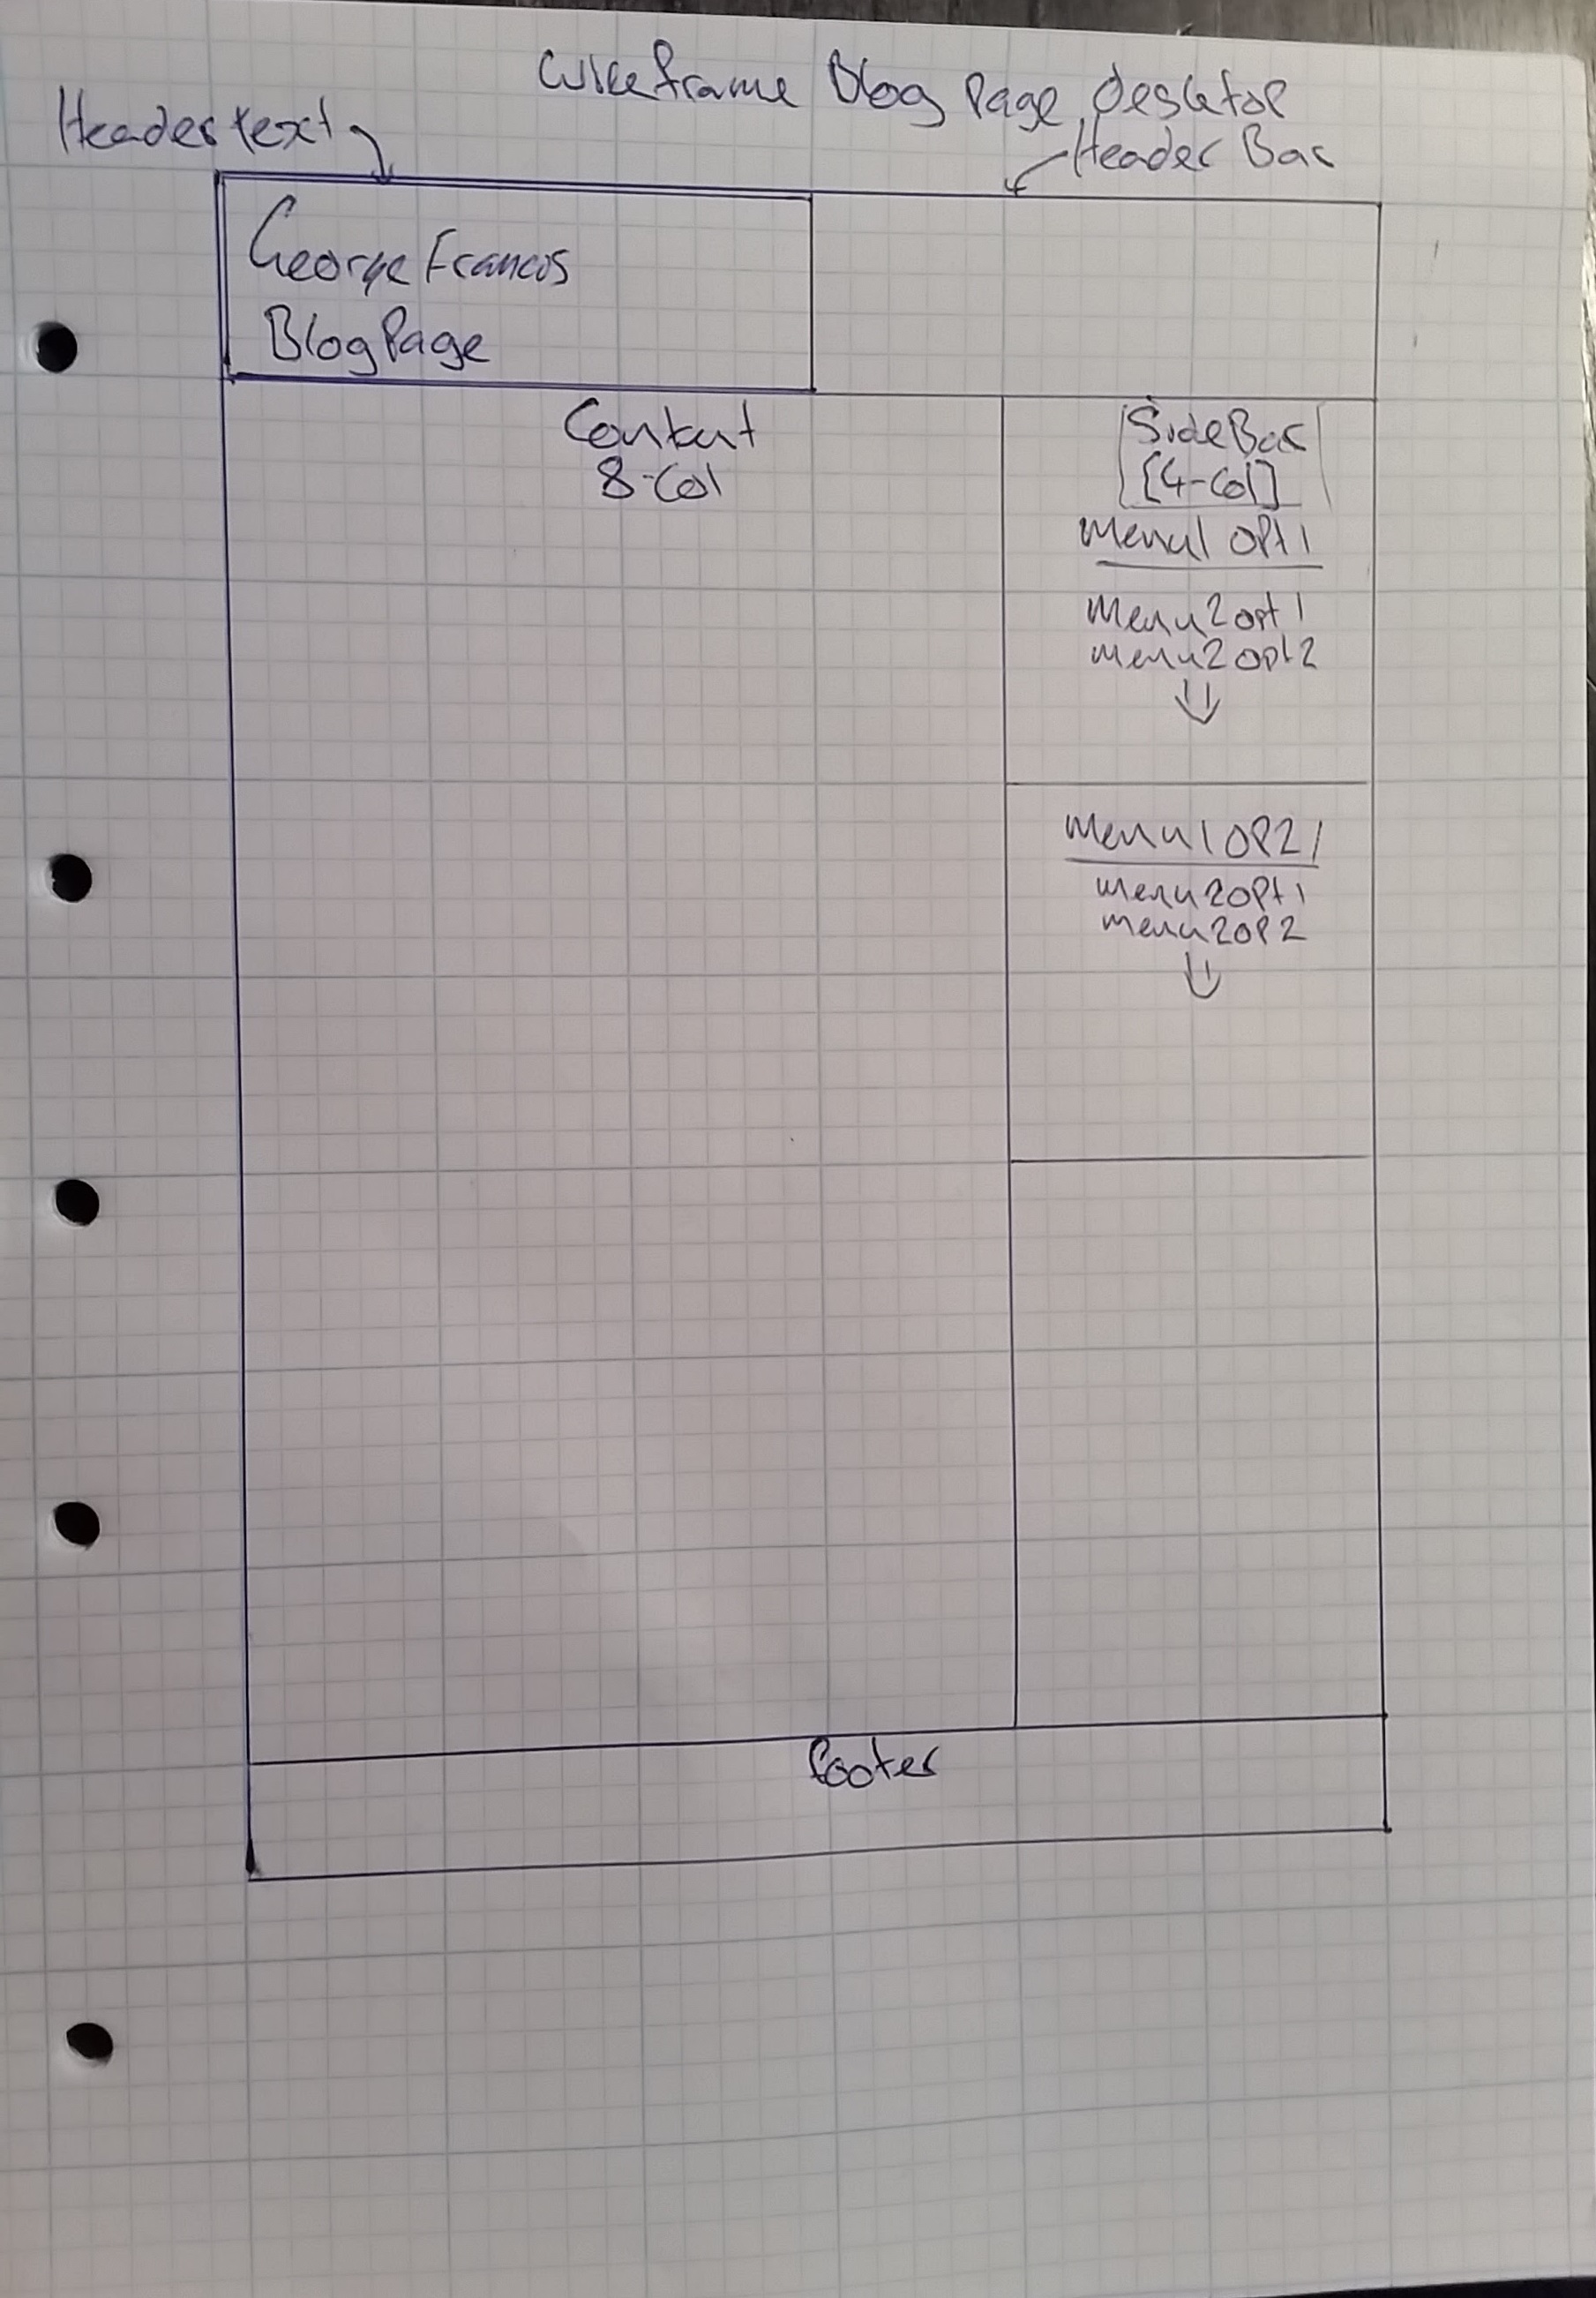 Wireframe Blog Page Desktop
Header text
Header Bar
George Francos
Blog Page
Content
8-Col
SideBar
[4-Col]
Menu1 OPt1
Menu2 opt1
menu2 opt2
Menu1 OP2
menu2OPt1
menu2OP2
footer